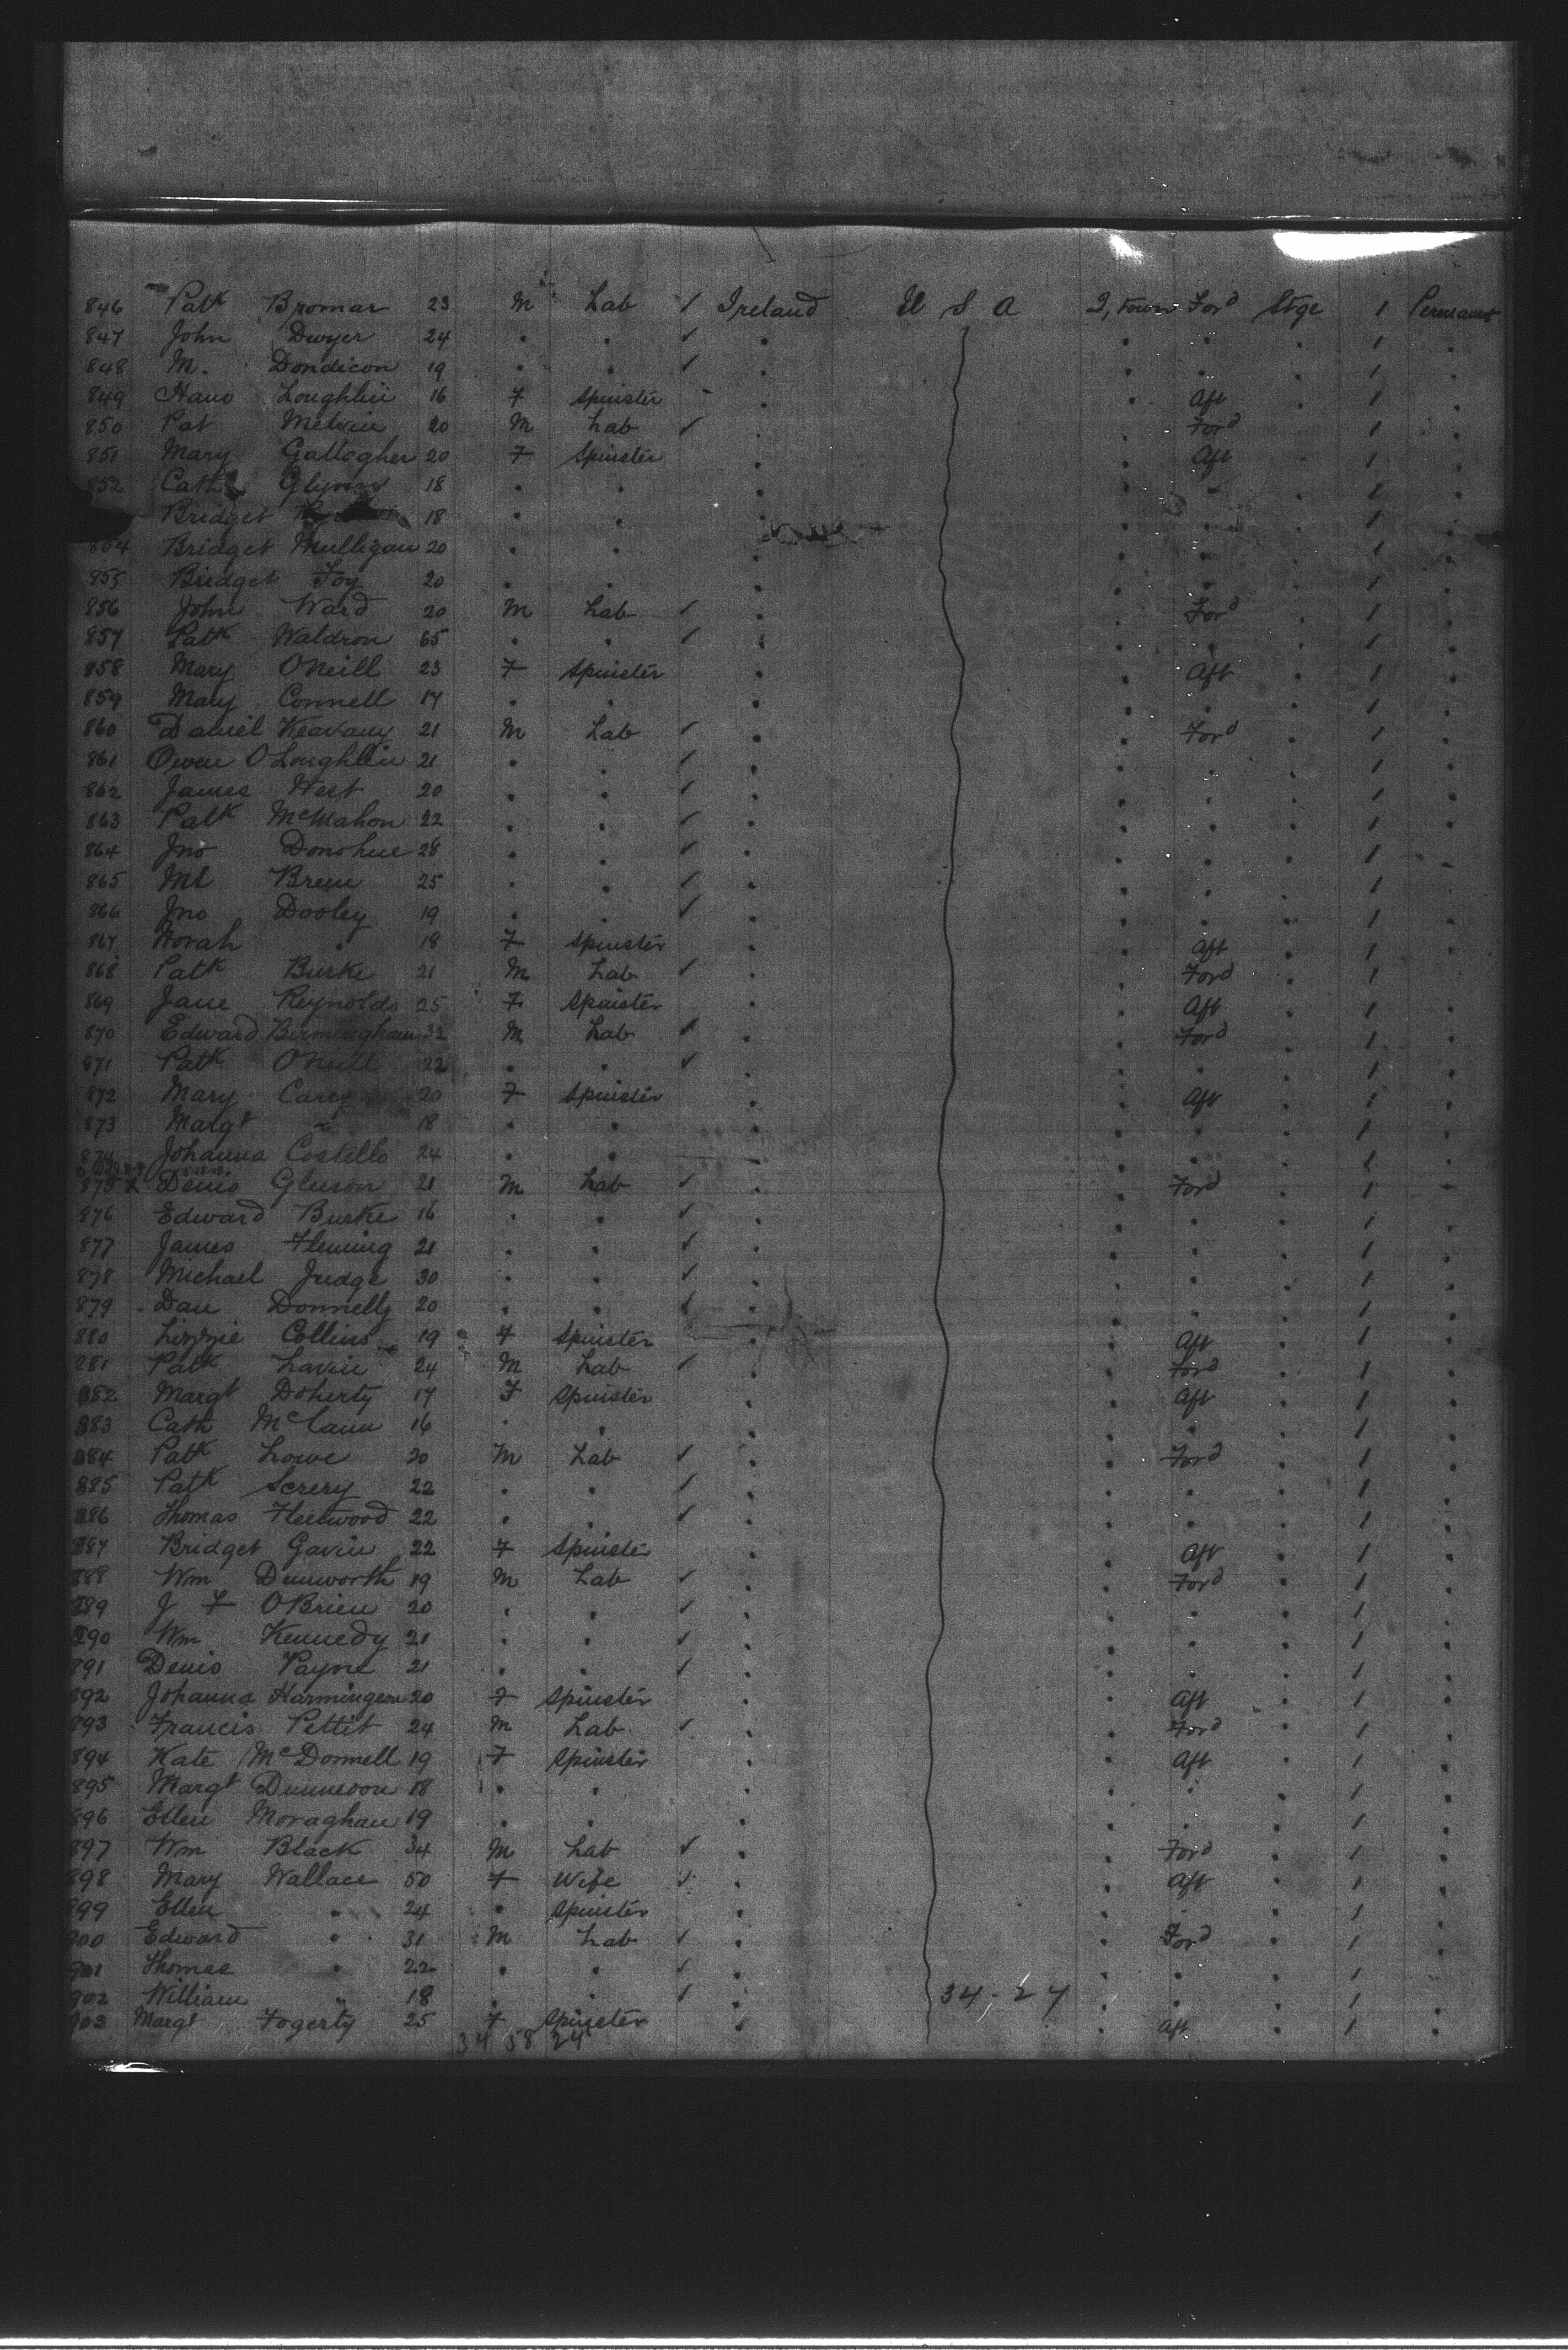 846 Patk Bromar 23 M Lab / Ireland U S A Q,town Ford Stge 1 Permanet
847 John Dwyer 24 . . / . . . . 1 .
848 M. Dondicon 19 . . / . . . . 1 .
849 Hano Loughlin 16 F Spinster - . . Aft . 1 .
850 Pat Melvin 20 M Lab / . . Ford . 1 .
851 Mary Gallogher 20 F Spinster . . Aft . 1 .
852 Cath Glynn 18 . . . . . . 1 .
Bridget 18 . . . . . . 1 .
854 Bridget Mulligan 20 . . . . . . 1 .
855 Bridget Foy 20 . . . . . . 1 .
856 John Ward 20 M Lab / . . Ford . 1 .
857 Patk Waldron 65 . . / . . . . 1 .
858 Mary ONeill 23 F Spinster . . Aft . 1 .
859 Mary Connell 17 . . . . . . 1 .
860 Daniel Keavany 21 M Lab / . . Ford . 1 .
861 Owen OLoughlin 21 . . / . . . . 1 .
862 James West 20 . . / . . . . 1 .
863 Patk McMahon 22 . . / . . . . 1 .
864 Jno Donohue 28 . . / . . . . 1 .
865 Ml Breen 25 . . / . . . . 1 .
866 Jno Dooley 19 . . / . . . . 1 .
867 Norah " 18 F Spinster . . Aft . 1 .
868 Patk Burke 21 M Lab / . . Ford . 1 .
869 Jane Reynolds 25 F Spinster . . Aft . 1 .
870 Edward Birmingham 32 M Lab / . . Ford . 1 .
871 Patk ONeill 22 . . / . . . . 1 .
872 Mary Carey 20 F Spinster . . Aft . 1 .
873 Margt " 18 . . . . . . 1 .
874 Johanna Costello 24 . . . . . . 1 .
875 x Denis Gleeson 21 M Lab / . . Ford . 1 .
876 Edward Burke 16 . . / . . . . 1 .
877 James Fleming 21 . . / . . . . 1 .
878 Michael Judge 30 . . / . . . . 1 .
879 Dan Donnelly 20 . . / . . . . 1 .
880 Lizzie Collins 19 F Spinster . . Aft . 1 .
881 Patk Lavin 24 M Lab / . . Ford . 1 .
882 Margt Doherty 17 F Spinster . . Aft . 1 .
883 Cath McCann 16 . . . . . . 1 .
884 Patk Lowe 20 M Lab / . . Ford . 1 .
885 Patk Screry 22 . . / . . . . 1 .
886 Thomas Fleetwood 22 . . / . . . . 1 .
887 Bridget Gavin 22 F Spinster . . Aft . 1 .
888 Wm Dunworth 19 M Lab / . . Ford . 1 .
889 J F OBrien 20 . . / . . . . 1 .
890 Wm Kennedy 21 . . / . . . . 1 .
891 Denis Payne 21 . . / . . . . 1 .
892 Johanna Harmingeon 20 F Spinster . . Aft . 1 .
893 Francis Pettit 24 M Lab / . . Ford . 1 .
894 Kate McDonnell 19 F Spinster . . Aft . 1 .
895 Margt Dunnevon 18 . . . . . . 1 .
896 Ellen Moraghan 19 . . . . . . 1 .
897 Wm Black 34 M Lab / . . Ford . 1 .
898 Mary Wallace 50 F Wife / . . Aft . 1 .
899 Ellen " 24 . Spinster . . . . 1 .
900 Edward " 31 M Lab / . . Ford . 1 .
901 Thomas " 22 . . / . . . . 1 .
902 William " 18 . . / . 34-27 . . . 1 .
903 Margt Fogerty 25 F Spinster . . Aft . 1 .
34 58 24